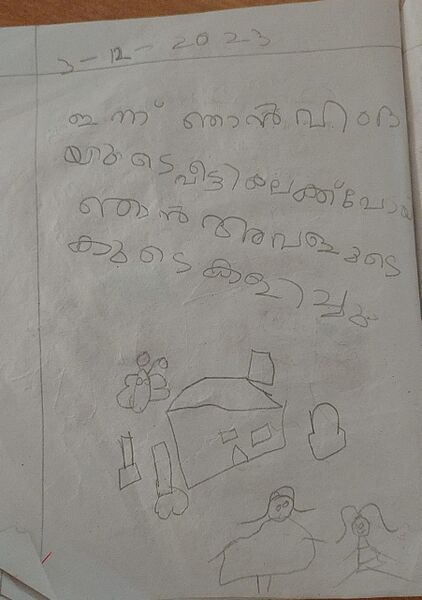 3-12-2023
ഇന്ന് ഞാൻ
യുടെ വീട്ടിലേക്ക് പോയി
ഞാൻ അവളുടെ
കുടെ കളിച്ചു